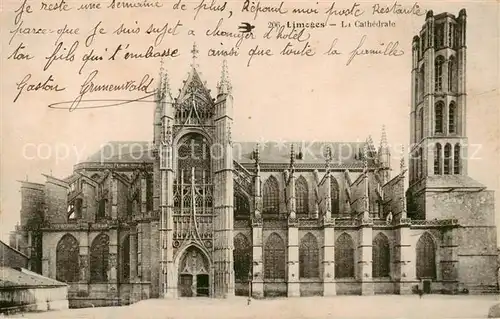 Je reste une semaine de plus, Répond moi Poste Restante
206. Limoges - La Cathédrale
parce que je suis sujet a changer d'hotel
Ton fils qui t'embrasse ainsi que toute la famille
Gaston Grunenwald
delcampe.net